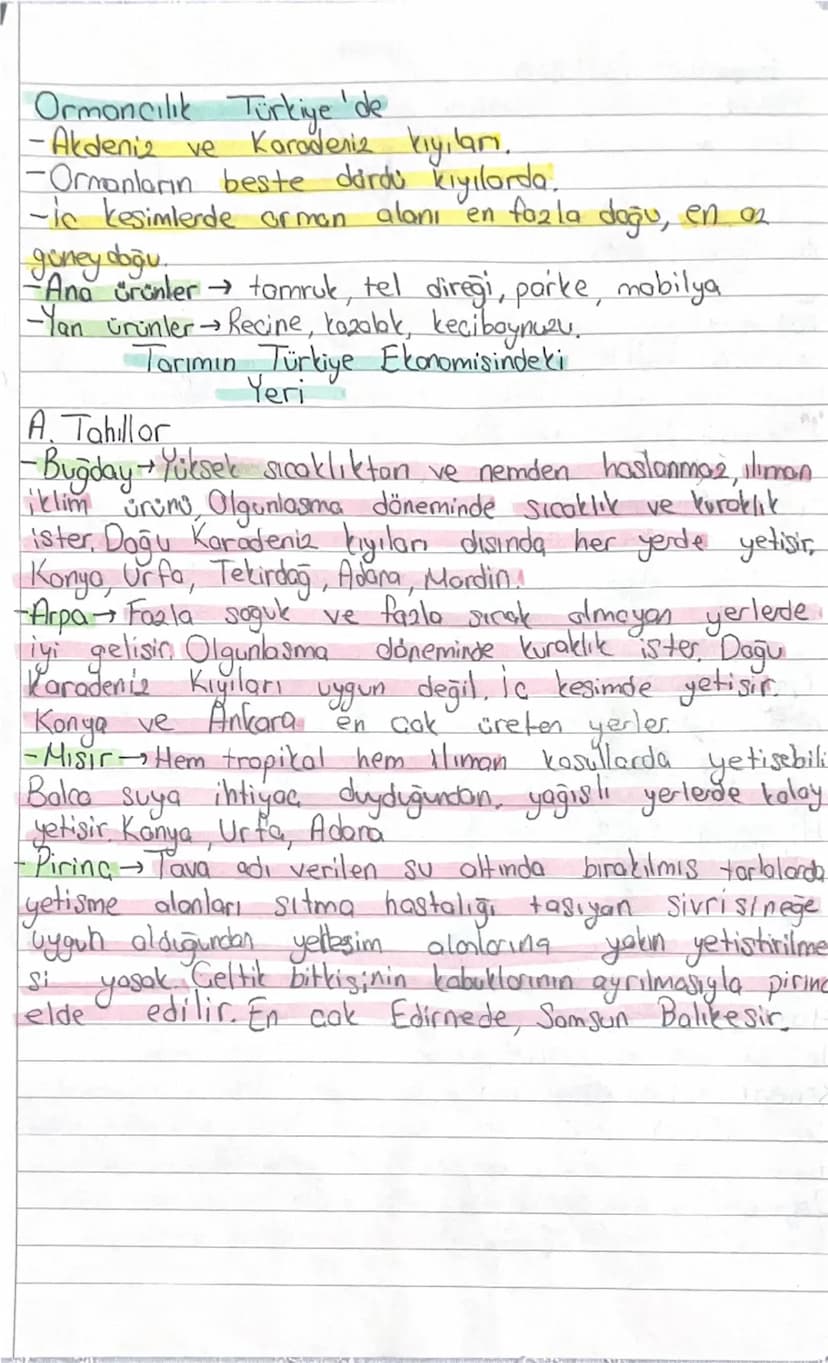 Ormancılık Türkiye'de
-Akdeniz ve Karadeniz kıyıları.
-Ormanların beste dördü kıyılarda.
-İc kesimlerde orman alanı en fazla doğu, en az
güneydoğu.
-Ana ürünler → tomruk, tel direği, parke, mobilya
-Yan ürünler → Recine, kozalak, keciboynuzu.
Tarımın Türkiye Ekonomisindeki
Yeri
A. Tahıllar
-Buğday → Yüksek sıcaklıktan ve nemden haslanmaz, ılıman
iklim ürünü. Olgunlasma döneminde sıcaklık ve kuraklık
ister. Doğu Karadeniz kıyıları dısında her yerde yetisir.
Konya, Urfa, Tekirdağ, Adana, Mardin.
-Arpa → Fazla soğuk ve fazla sıcak olmayan yerlerde
iyi gelisir. Olgunlasma döneminde kuraklık ister. Doğu
Karadeniz Kıyıları uygun değil. İc kesimde yetisir.
Konya ve Ankara en cok üreten yerler.
-Mısır → Hem tropikal hem ılıman kosullarda yetisebili
Bolca suya ihtiyac duyduğundan, yağıslı yerlerde kolay
yetisir. Konya, Urfa, Adana
-Pirinc → Tava adı verilen su altında bırakılmıs tarlalarda
yetisme alanları sıtma hastalığı tasıyan sivrisineğe
uygun olduğundan yerlesim alanlarına yakın yetistirilme
si yasak. Celtik bitkisinin kabuklarının ayrılmasıyla pirinc
elde edilir. En cok Edirnede, Samsun Balıkesir.